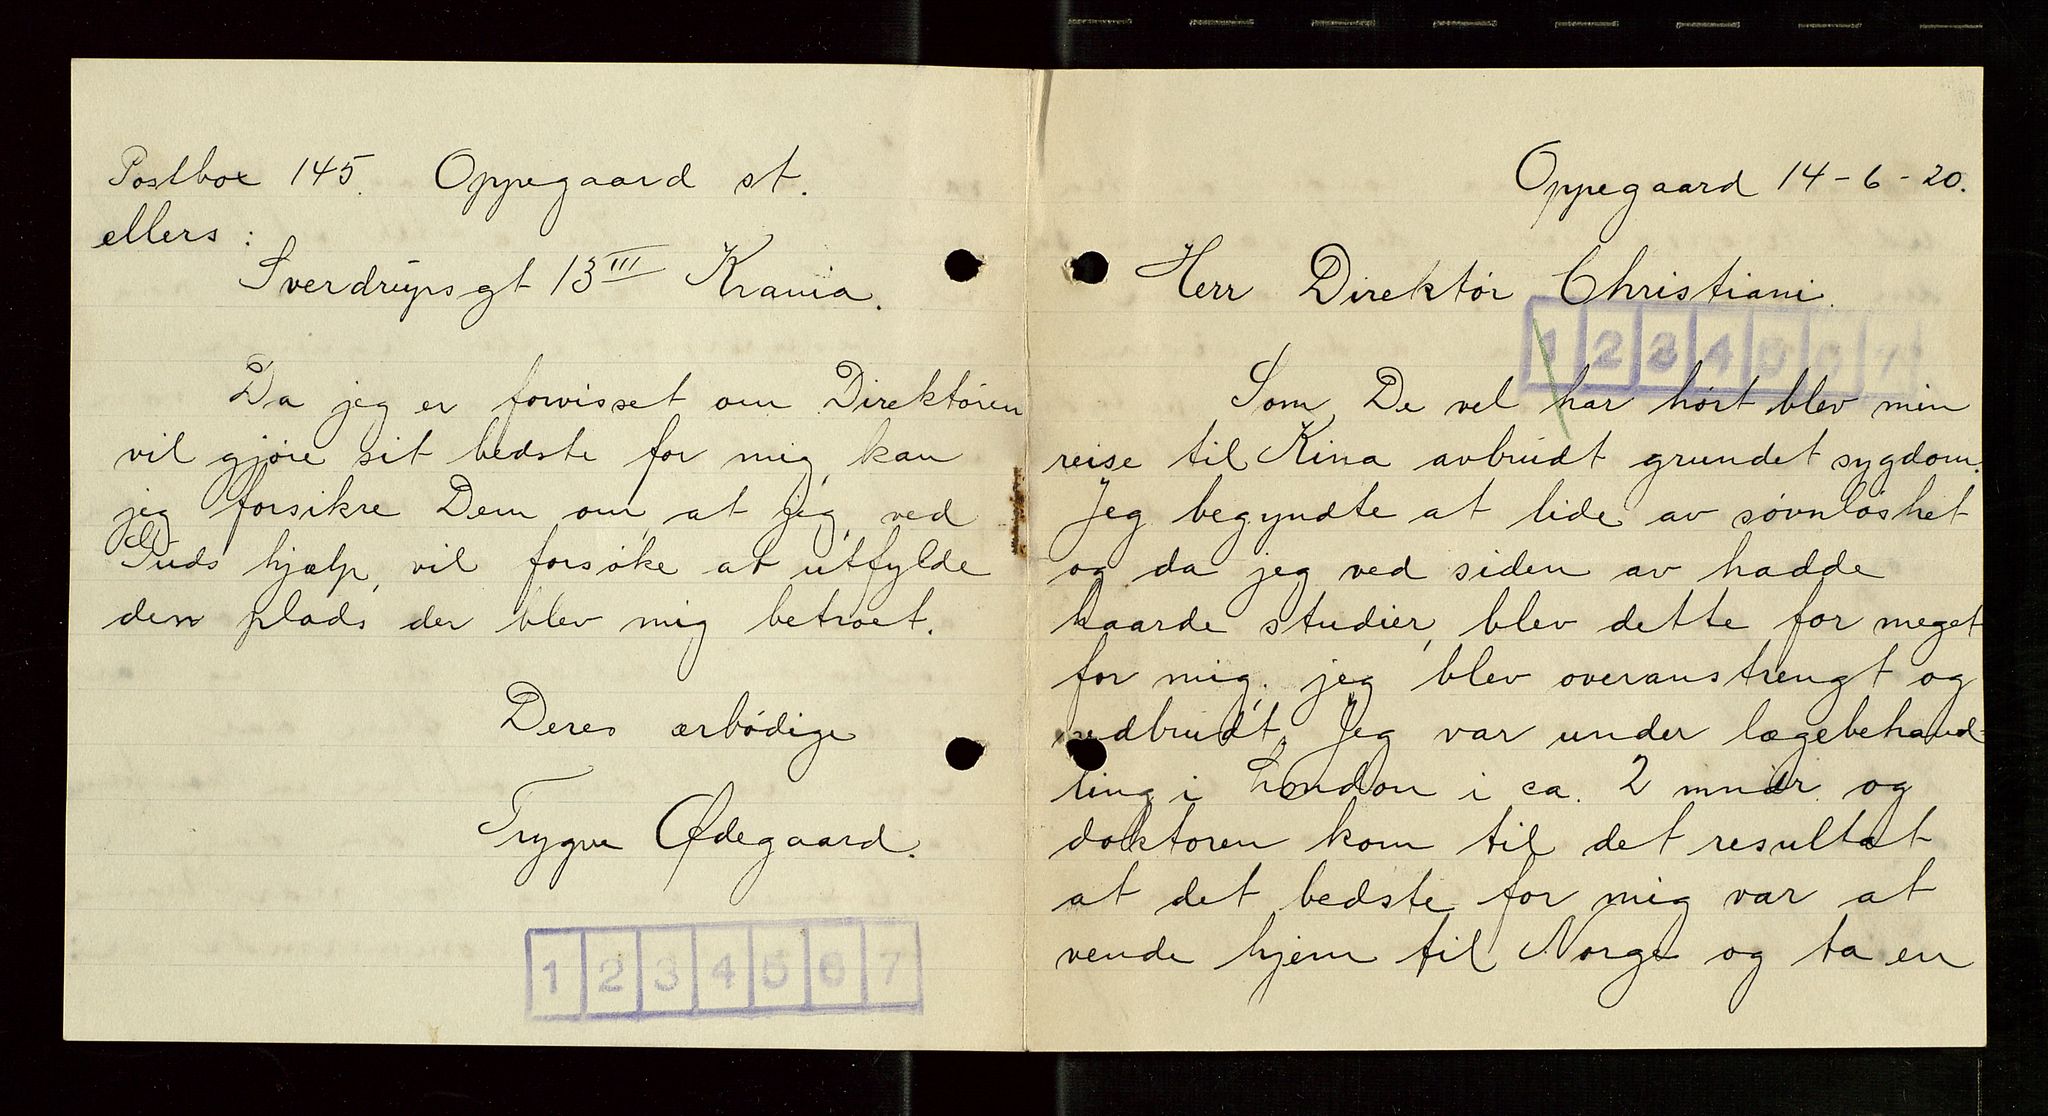 Postbox 145. Oppegaard st.
ellers:
Sverdrupsgt 13 III Krania.
Da jeg er forvisset om Direktøren
vil gjøre sit bedste for mig, kan
jeg forsikre Dem om, at jeg, ved
Guds hjælp, vil forsøke at utfylde
den plads, der blev mig betroet.
Deres ærbødige
Trygve Ødegaard.
1 2 3 4 5 6 7
Oppegaard 14-6-20.
Herr Direktør Christiani.
1 2 3 4 5 6 7
Som De vel har hørt blev min
reise til Kina avbrudt grundet sygdom.
Jeg begyndte at lide av søvnløshet
og da jeg ved siden av hadde
haarde studier, blev dette for meget
for mig; jeg blev overanstrengt og
nedbrudt. Jeg var under lægebehand=
ling i London i ca. 2 mndr. og
doktoren kom til det resultat
at det bedste for mig var at
vende hjem til Norge og ta en